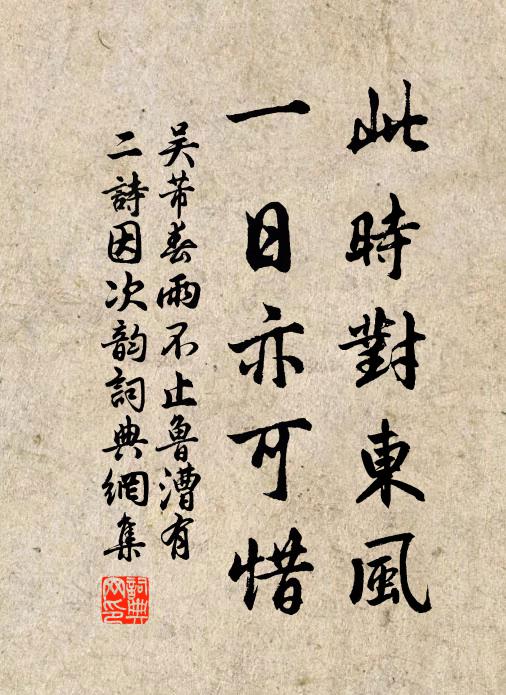 此時對東風
一日亦可惜
吳芾春雨不止魯漕有
二詩因次韵詞典網集
詞典
网印